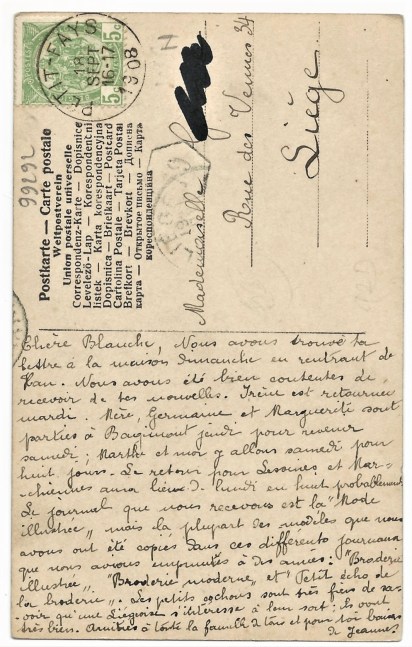 PETIT-FAYS
18
SEPT
16-17
1908
5c 5c
99292
Postkarte — Carte postale
Weltpostverein
Union postale universelle
Correspondenz-Karte — Dopisnice
Levelező-Lap — Korespondentni
listek — Karta korespondencyjna
Dopisnica — Briefkaart — Postcard
Cartolina Postale — Tarjeta Postal
Brefkort — Brevkort — Дописна
карта — Открытое письмо — Карта
корреспонденційна
Mademoiselle
Rue des Vennes 34
Liège
Chère Blanche, Nous avons trouvé ta
lettre à la maison dimanche en rentrant de
Han. Nous avons été bien contentes de
recevoir de tes nouvelles. Irène est retournée
mardi. Mère, Germaine et Marguerite sont
parties à Bagimont jeudi pour revenir
samedi; Marthe et moi y allons samedi pour
huit jours. Le retour pour Lessines et Mar-
chiennes aura lieu de lundi en huit probablement
Le journal que nous recevons est la "Mode
illustrée" mais la plupart des modèles que nous
avons ont été copiés dans ces différents journaux
que nous avions empruntés à des amies: "Broderie
illustrée", "Broderie moderne" et "Petit écho de
la broderie". Les petits cochons sont très fiers de sa-
voir qu'une Liégeoise s'intéresse à leur sort: ils vont
très bien. Amitiés à toute la famille de tous et pour toi baisers
de Jeanne